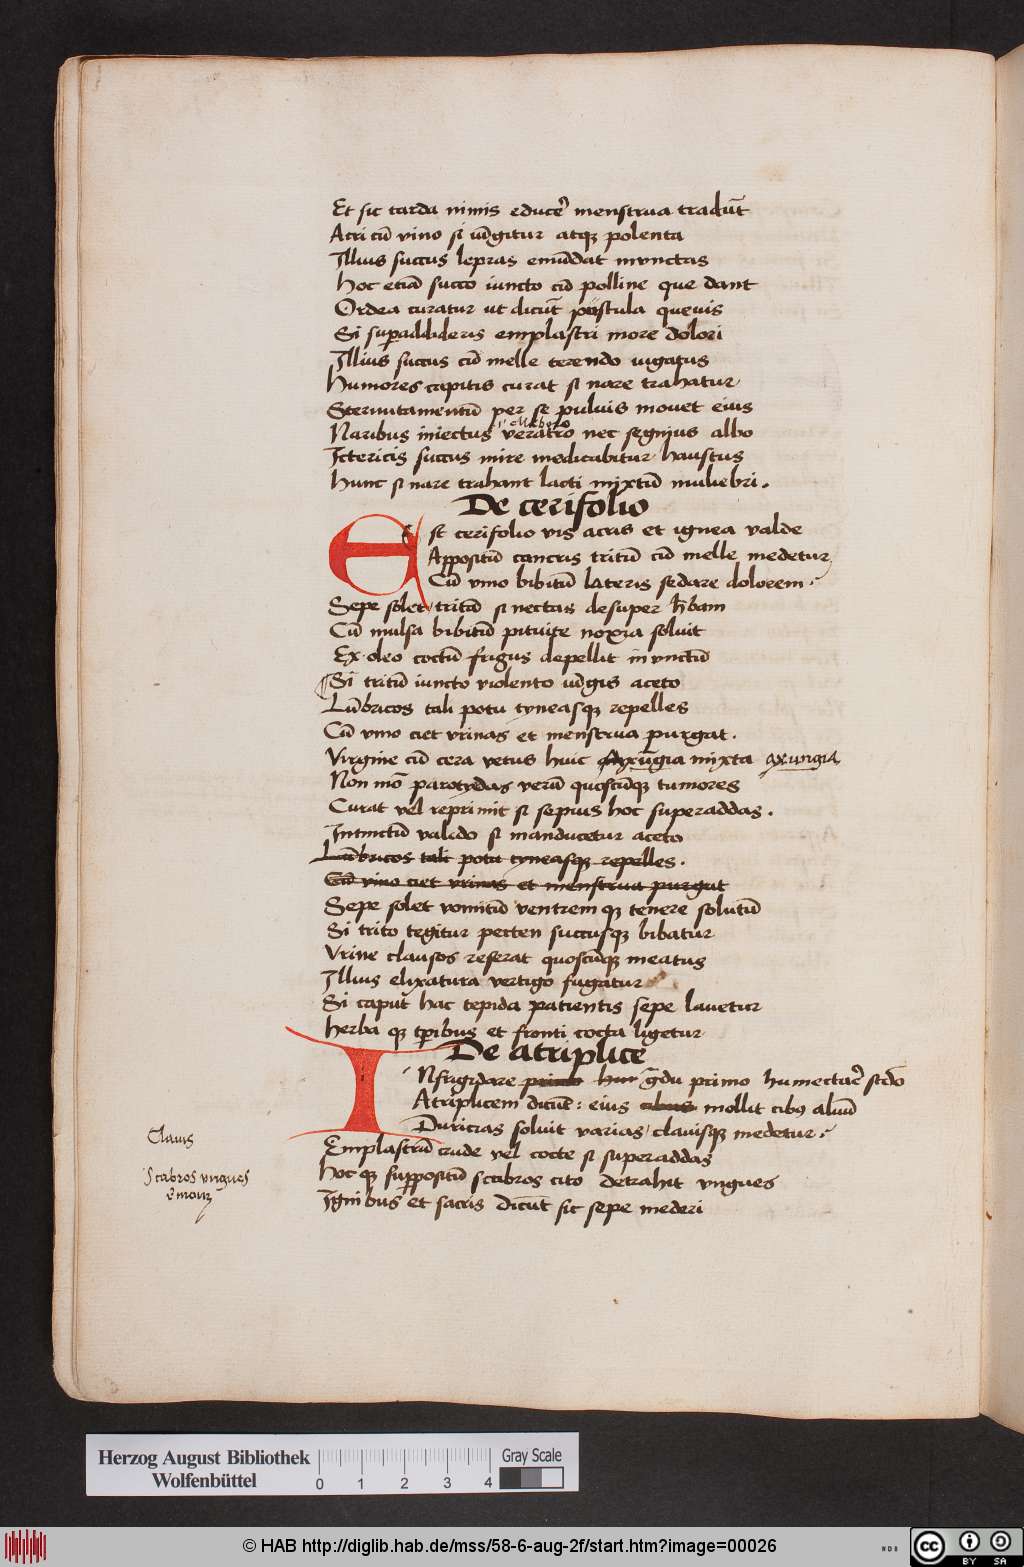 Et sic tarda nimis educe᷒ menstrua tradūt
Acri cū vino si ūgitur atqꝫ polenta
Illius succus lepras emūdat inunctas
Hoc etiā succo iuncto cū polline que dant
Ordea curatur ut dicūt pustula quevis
Si supaddideris emplastri more dolori
Illius succus cū melle terendo iugatus
Humores capitis curat si nare trahatur
Sternutamentū per se puluis mouet eius
Naribus iniectus veratro nec segnius albo
Ictericis succus mire medicabitur haustus
Hunc si nare trahant lacti mixtū muliebri.
De cerifolio
Est cerifolio vis acris et ignea valde
Appositū cancris tritū cū melle medetur
Cū vino bibitū lateris sedare dolorem
Sepe solet tritā si nectas desuper h̄bam
Cū mulsa bibitū pituite noxia soluit
Ex oleo coctū frigus depellit inunctū
Si tritū iuncto violento ūgis aceto
Lūbricos tali potu tyneasqꝫ repelles
Cū vino ciet vrinas et menstrua purgat.
Virgine cū cera vetus huic axūgia mixta axungia
Non mō parotydas verū quoscūqꝫ tumores
Curat vel reprimit si sepius hoc superaddas.
Intinctū valido si manducetur aceto
Lūbricos tali potu tyneasqꝫ repelles.
Cū vino ciet vrinas et menstrua purgat
Sepe solet vomitū ventrem qꝫ tenere solutū
Si trito tegitur pecten succusqꝫ bibatur
Vrine clausos reserat quoscūqꝫ meatus
Illius elixatura vertigo fugatur
Si caput hac tepida patientis sepe lauetur
Herba qꝫ tpībus et fronti cocta ligetur
De atriplice
INfrigidare primo hui᷒ g̃du primo humectare scd̄o
Atriplicem dicūt: eius cibus mollit cibꝰ aluū
Duricias soluit varias clauisqꝫ medetur
Clauis
Emplastrū crude vel cocte si superaddas
Scabros vngues
Hoc qꝫ suppositū scabros cito detrahit vngues
Ignibus et sacris dicūt sic sepe mederi
Herzog August Bibliothek
Wolfenbüttel
0 1 2 3 4
Gray Scale
© HAB http://diglib.hab.de/mss/58-6-aug-2f/start.htm?image=00026
cc BY SA